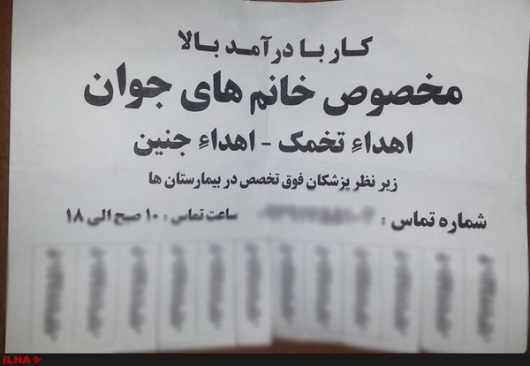 کار با درآمد بالا
مخصوص خانم های جوان
اهداءِ تخمک - اهداءِ جنین
زیر نظر پزشکان فوق تخصص در بیمارستان ها
شماره تماس :
ساعت تماس : ۱۰ صبح الی ۱۸
ILNA